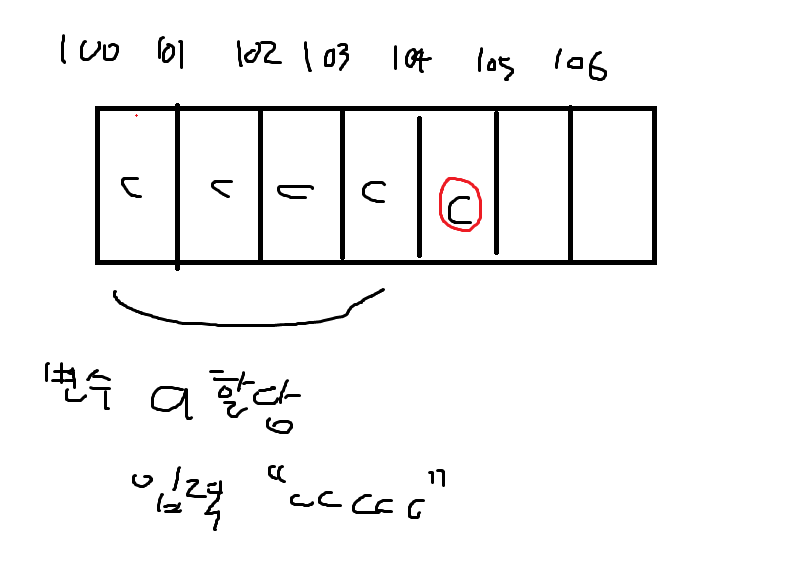 100 101 102 103 104 105 106
c c c c c
변수 a 할당
입력 "ccccc"